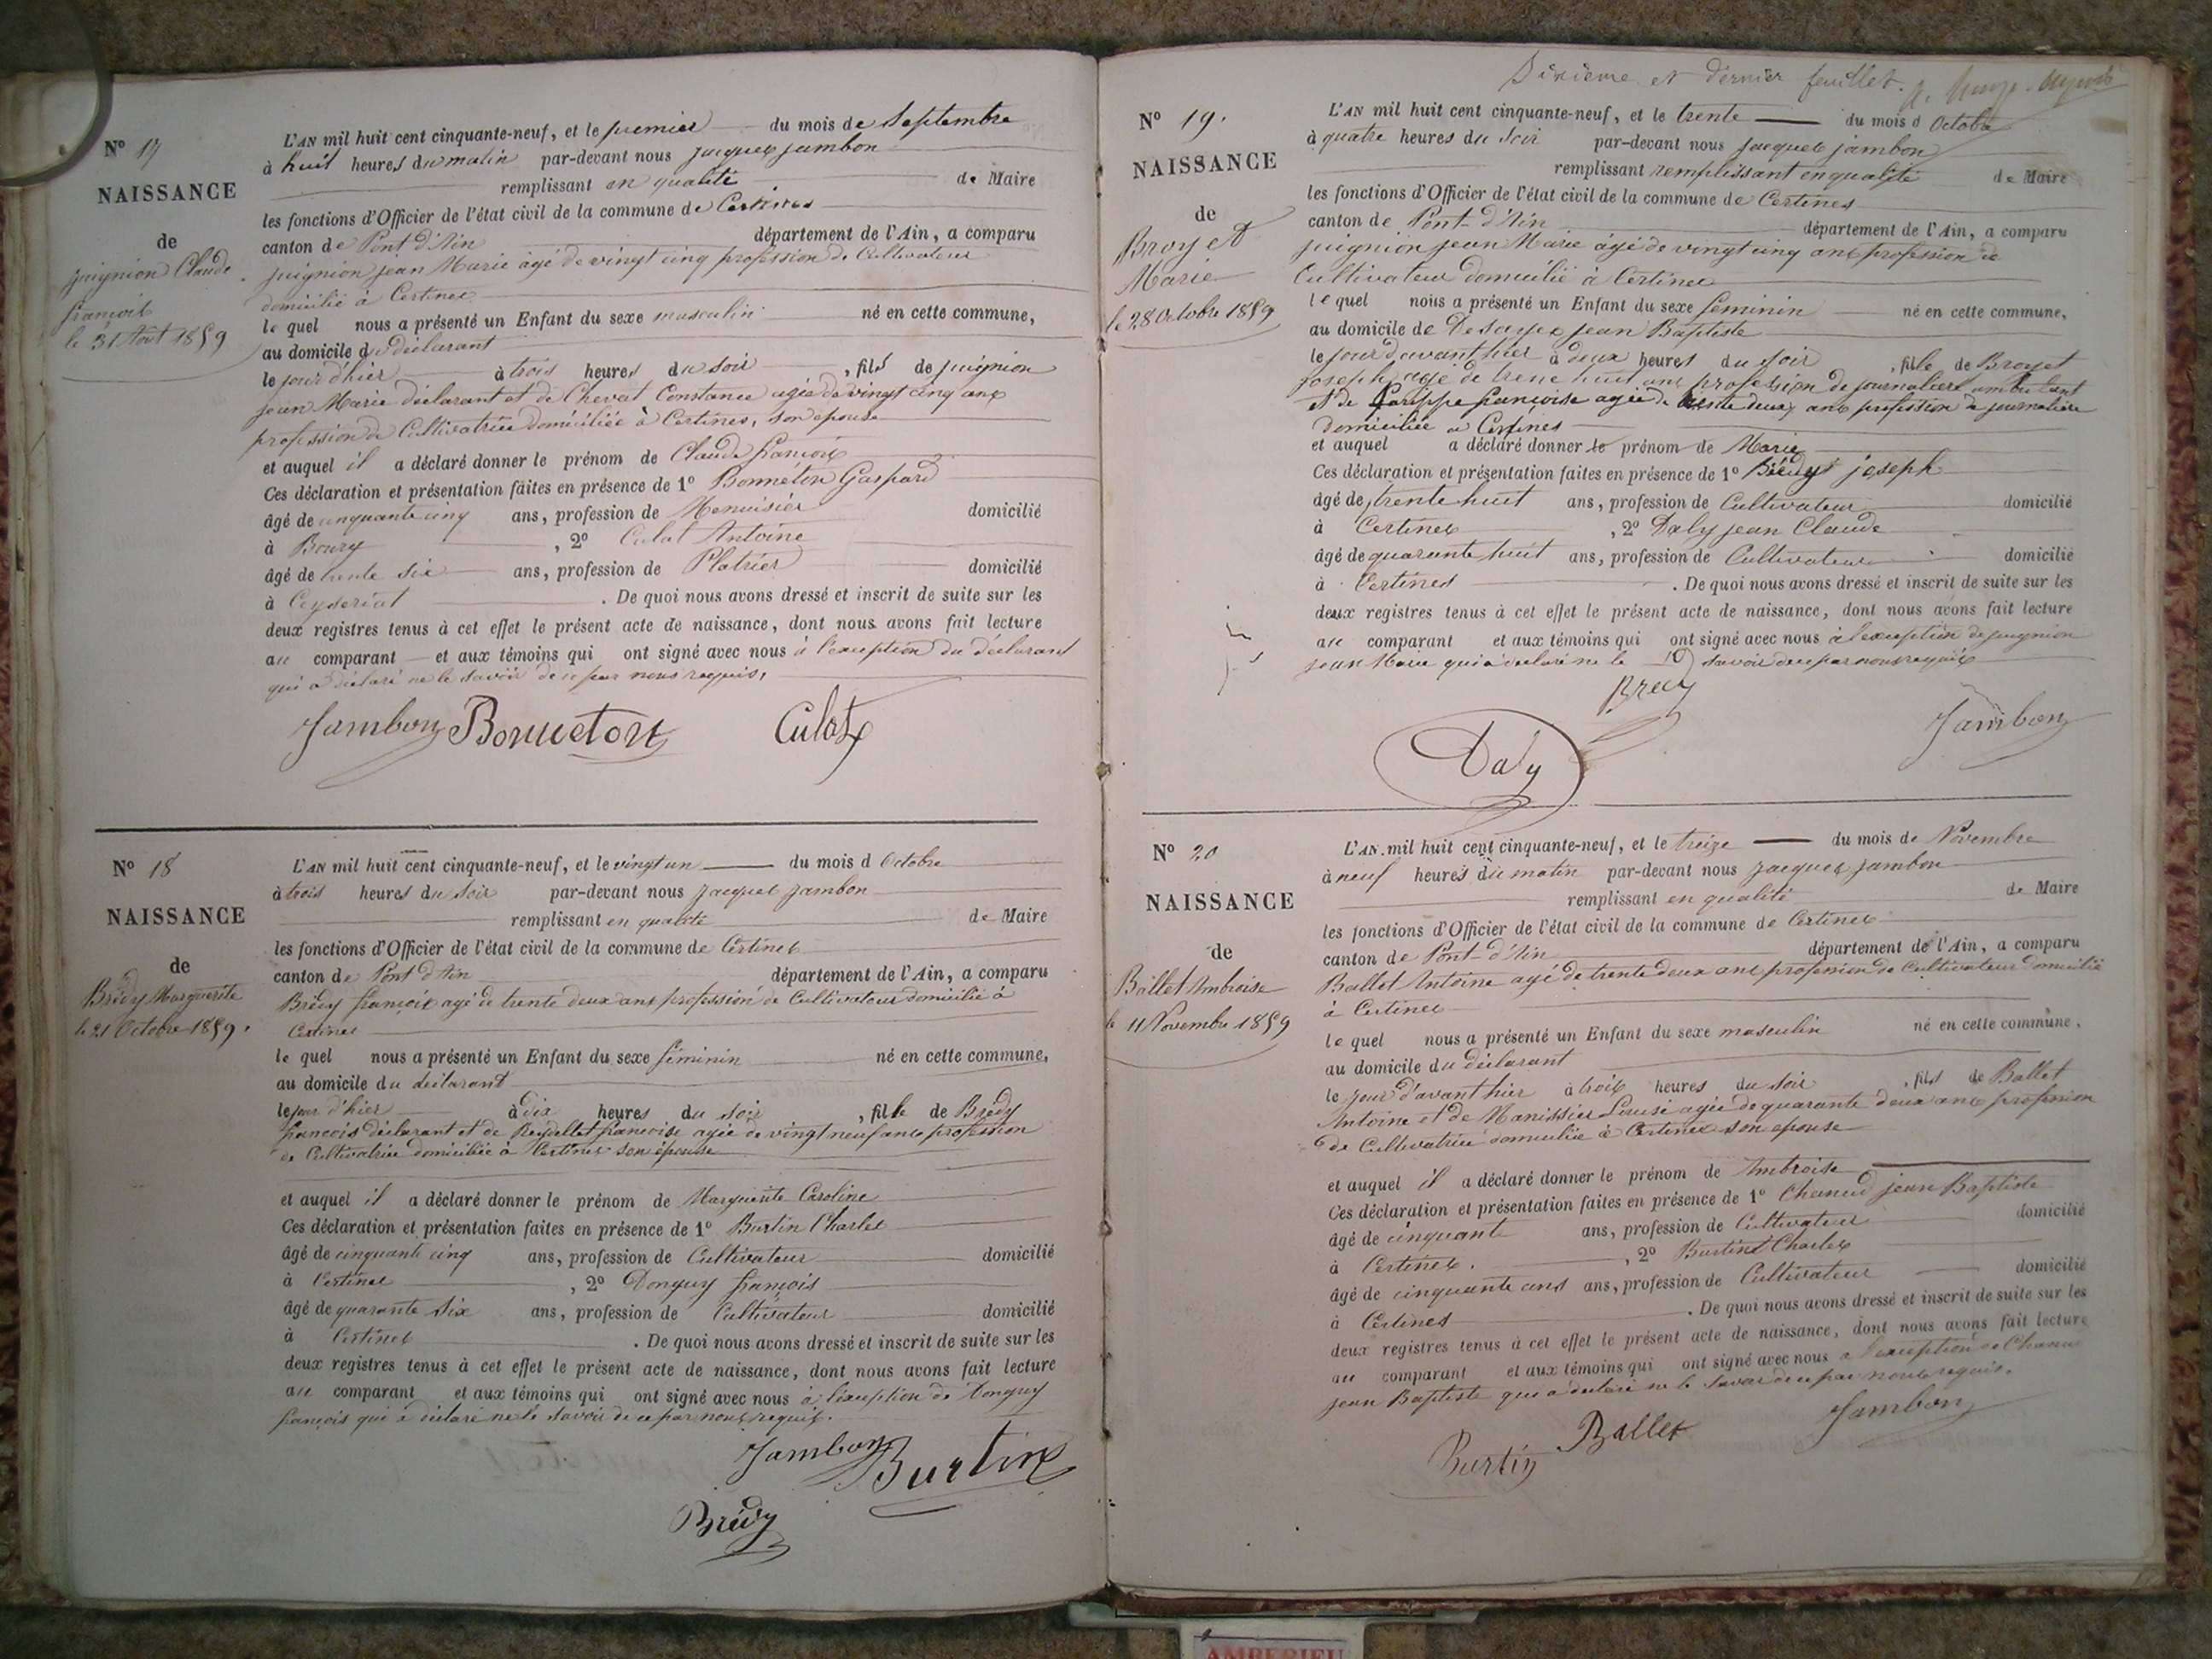 Nº 17
NAISSANCE
de
juignion Claude
françois
le 31 Août 1859
L'AN mil huit cent cinquante-neuf, et le premier du mois de Septembre
à huit heures du matin par-devant nous jacques jambon
remplissant en qualité de Maire
les fonctions d'Officier de l'état civil de la commune de Certines
canton de Pont d'Ain département de l'Ain, a comparu
juignion jean Marie agé de vingt cinq profession de Cultivateur
domicilié à Certines
le quel nous a présenté un Enfant du sexe masculin né en cette commune,
au domicile du déclarant
le jour d'hier à trois heures du soir, fils de juignion
jean Marie déclarant et de Chevat Constance agée de vingt cinq ans
profession de Cultivatrice domiciliée à Certines, son epouse
et auquel il a déclaré donner le prénom de Claude françois
Ces déclaration et présentation faites en présence de 1º Bonneton Gaspard
âgé de cinquante cinq ans, profession de Menuisier domicilié
à Bourg, 2º Culat Antoine
âgé de trente six ans, profession de Platrier domicilié
à Ceyseriat. De quoi nous avons dressé et inscrit de suite sur les
deux registres tenus à cet effet le présent acte de naissance, dont nous avons fait lecture
au comparant et aux témoins qui ont signé avec nous à l'exception du déclarant
qui a déclaré ne le savoir de ce par nous requis,
Jambon Bonneton Culat
Nº 18
NAISSANCE
de
Brédy Marguerite
le 21 Octobre 1859.
L'AN mil huit cent cinquante-neuf, et le vingt un du mois d Octobre
à trois heures du soir par-devant nous jacques jambon
remplissant en qualité de Maire
les fonctions d'Officier de l'état civil de la commune de Certines
canton de Pont d'Ain département de l'Ain, a comparu
Brédy françois agé de trente deux ans profession de Cultivateur domicilié à
Certines
le quel nous a présenté un Enfant du sexe féminin né en cette commune,
au domicile du déclarant
le jour d'hier à dix heures du soir, fille de Brédy
françois déclarant et de françoise agée de vingt neuf ans profession
de Cultivatrice domiciliée à Certines son épouse
et auquel il a déclaré donner le prénom de Marguerite Caroline
Ces déclaration et présentation faites en présence de 1º Burtin Charles
âgé de cinquante cinq ans, profession de Cultivateur domicilié
à Certines, 2º Donguy françois
âgé de quarante six ans, profession de Cultivateur domicilié
à Certines. De quoi nous avons dressé et inscrit de suite sur les
deux registres tenus à cet effet le présent acte de naissance, dont nous avons fait lecture
au comparant et aux témoins qui ont signé avec nous à l'exception de Donguy
françois qui a déclaré ne le savoir de ce par nous requis.
Jambon Burtin
Brédy
Sixième et dernier feuillet.
Nº 19.
NAISSANCE
de
Broyet
Marie
le 28 Octobre 1859
L'AN mil huit cent cinquante-neuf, et le trente du mois d Octobre
à quatre heures du soir par-devant nous jacques jambon
remplissant remplissant en qualité de Maire
les fonctions d'Officier de l'état civil de la commune de Certines
canton de Pont-d'Ain département de l'Ain, a comparu
juignion jean Marie âgé de vingt cinq ans profession de
Cultivateur domicilié à Certines
le quel nous a présenté un Enfant du sexe féminin né en cette commune,
au domicile de jean Baptiste
le jour d'avant hier à deux heures du soir, fille de Broyet
joseph agé de trente huit ans profession de journalier ambulant
et de françoise agée de trente deux ans profession de journalière
domiciliée à Certines
et auquel a déclaré donner le prénom de Marie
Ces déclaration et présentation faites en présence de 1º Brédy joseph
âgé de trente huit ans, profession de Cultivateur domicilié
à Certines, 2º Daly jean Claude
âgé de quarante huit ans, profession de Cultivateur domicilié
à Certines. De quoi nous avons dressé et inscrit de suite sur les
deux registres tenus à cet effet le présent acte de naissance, dont nous avons fait lecture
au comparant et aux témoins qui ont signé avec nous à l'exception de juignion
jean Marie qui a déclaré ne le savoir de ce par nous requis
Bredy
Daly Jambon
Nº 20
NAISSANCE
de
Ballet Ambroise
le 11 Novembre 1859
L'AN mil huit cent cinquante-neuf, et le treize du mois de Novembre
à neuf heures du matin par-devant nous jacques jambon
remplissant en qualité de Maire
les fonctions d'Officier de l'état civil de la commune de Certines
canton de Pont-d'Ain département de l'Ain, a comparu
Ballet Antoine agé de trente deux ans profession de Cultivateur domicilié
à Certines
le quel nous a présenté un Enfant du sexe masculin né en cette commune,
au domicile du déclarant
le jour d'avant hier à trois heures du soir, fils de Ballet
Antoine et de Manissier Louise agée de quarante deux ans profession
de Cultivatrice domiciliée à Certines son epouse
et auquel il a déclaré donner le prénom de Ambroise
Ces déclaration et présentation faites en présence de 1º Chanud jean Baptiste
âgé de cinquante ans, profession de Cultivateur domicilié
à Certines, 2º Burtin Charles
âgé de cinquante cinq ans, profession de Cultivateur domicilié
à Certines. De quoi nous avons dressé et inscrit de suite sur les
deux registres tenus à cet effet le présent acte de naissance, dont nous avons fait lecture
au comparant et aux témoins qui ont signé avec nous à l'exception de Chanud
jean Baptiste qui a déclaré ne le savoir de ce par nous requis.
Burtin Ballet Jambon
AMBERIEU